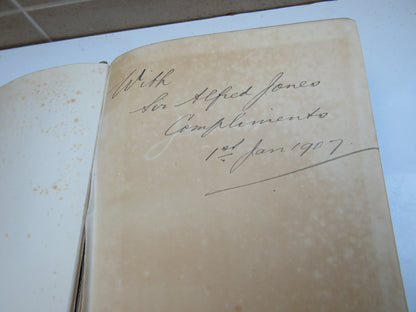 With
Sir Alfred Jones
Compliments
1st Jan 1907.